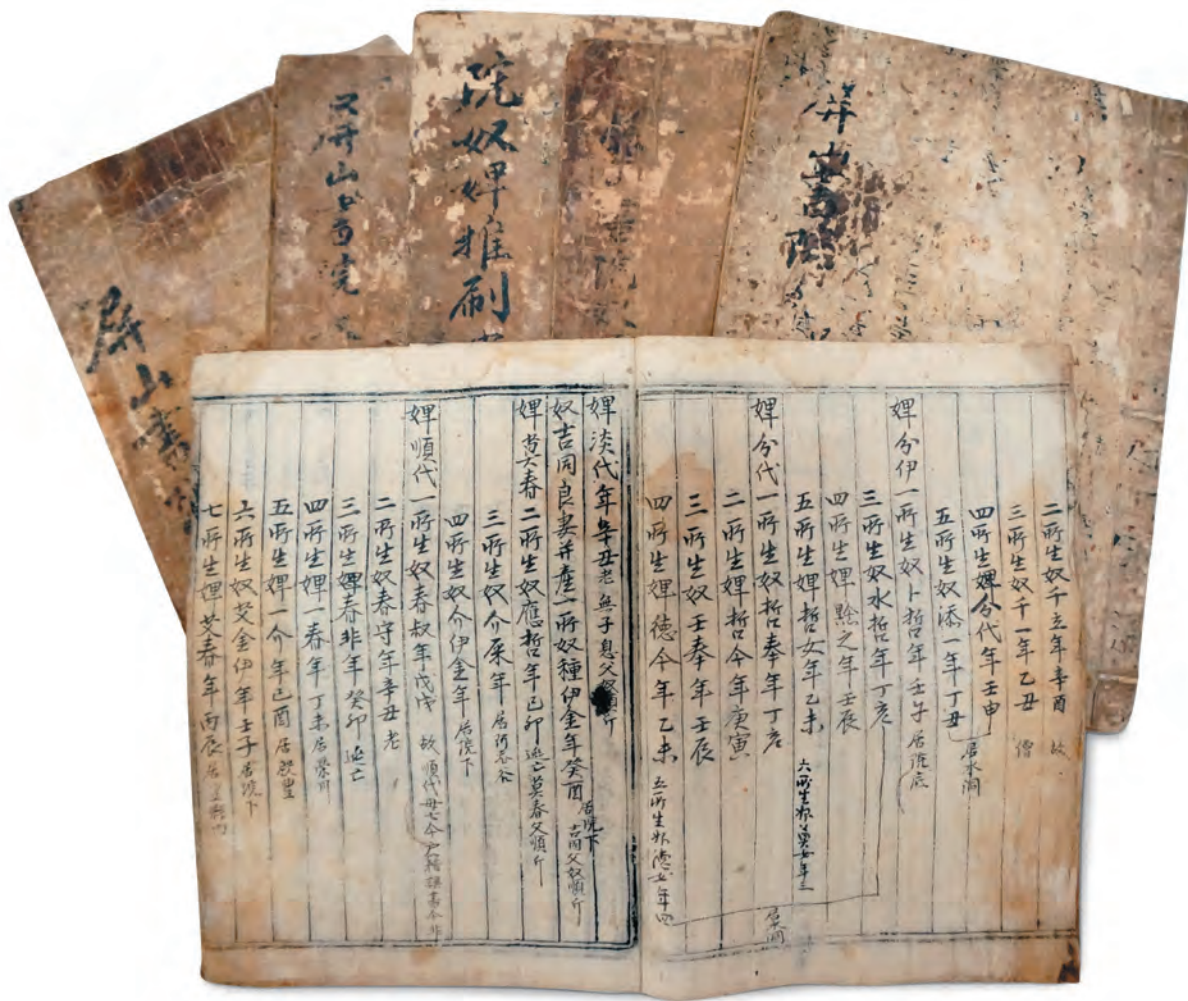 屏山書院
院
院奴婢推刷
屏山書院
屏山書
二所生奴千立年辛酉 故
三所生奴千一年乙丑 僧
四所生婢分代年壬申
五所生奴添一年丁丑
居水洞
婢分伊一所生奴卜哲年壬午 居院底
三所生奴水哲年丁亥
四所生婢點之年壬辰
五所生婢哲女年乙未 六所生婢萬女年三
婢分代一所生奴哲奉年丁亥
二所生婢哲今年庚寅
居水洞
三所生奴壬奉年壬辰
四所生婢德今年乙未 五所生婢德女年四
婢淡代年辛丑老 無子息父奴順斤
奴吉同良妻并産一所奴種伊金年癸酉 居院下 吉同父奴順斤
婢莫春二所生奴應哲年己卯 逃亡莫春父順斤
三所生奴介屎年 居
四所生奴介伊金年 居院下
婢順代一所生奴春叔年戊戌 故 順代母七今戶籍
二所生奴春守年辛丑 老
三所生婢春非年癸卯 逃亡
四所生婢一春年丁未 居
五所生婢一介年己酉 居
六所生奴艾金伊年壬子 居院下
七所生婢艾春年丙辰 居